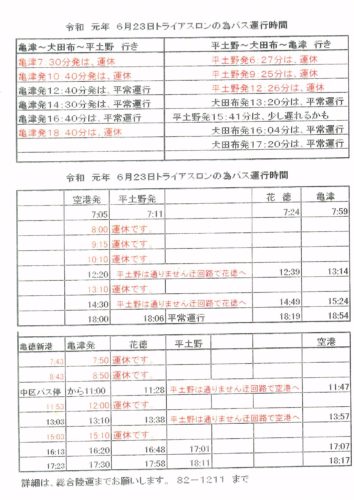 令和 元年 6月23日トライアスロンの為バス運行時間
亀津～犬田布～平土野 行き 平土野～犬田布～亀津 行き
亀津7 30分発は、運休 平土野発6 27分は、運休
亀津発10 40分発は、運休 平土野発9 25分は、運休
亀津発12:40分発は、平常運行 平土野発12 26分は、運休
亀津発14:30分発は、平常運行 犬田布発13:20分は、平常運行
亀津発16:40分は、平常運行 平土野発15:41分は、少し遅れるかも
亀津発18 40分は、運休 犬田布発16:04分は、平常運行
犬田布発17:20分は、平常運行
令和 元年 6月23日トライアスロンの為バス運行時間
空港発 平土野発 花徳 亀津
7:05 7:11 7:24 7:59
8:00 運休です。
9:15 運休です。
10:10 運休です。
12:20 平土野は通りません迂回路で花徳へ 12:39 13:14
13:10 運休です。
14:30 平土野は通りません迂回路で花徳へ 14:49 15:24
18:00 18:06 平常運行 18:19 18:54
亀徳新港 亀津発 花徳 平土野 空港
7:43 7:50 運休です。
8:43 8:50 運休です。
中区バス停 から11:00 11:28 平土野は通りません迂回路で空港へ 11:47
11:53 12:00 運休です。
13:03 13:10 13:38 平土野は通りません迂回路で空港へ 13:57
15:03 15:10 運休です。
16:13 16:20 16:48 17:01 17:07
17:23 17:30 17:58 18:11 18:17
詳細は、総合陸運までお願いします。 82－1211 まで